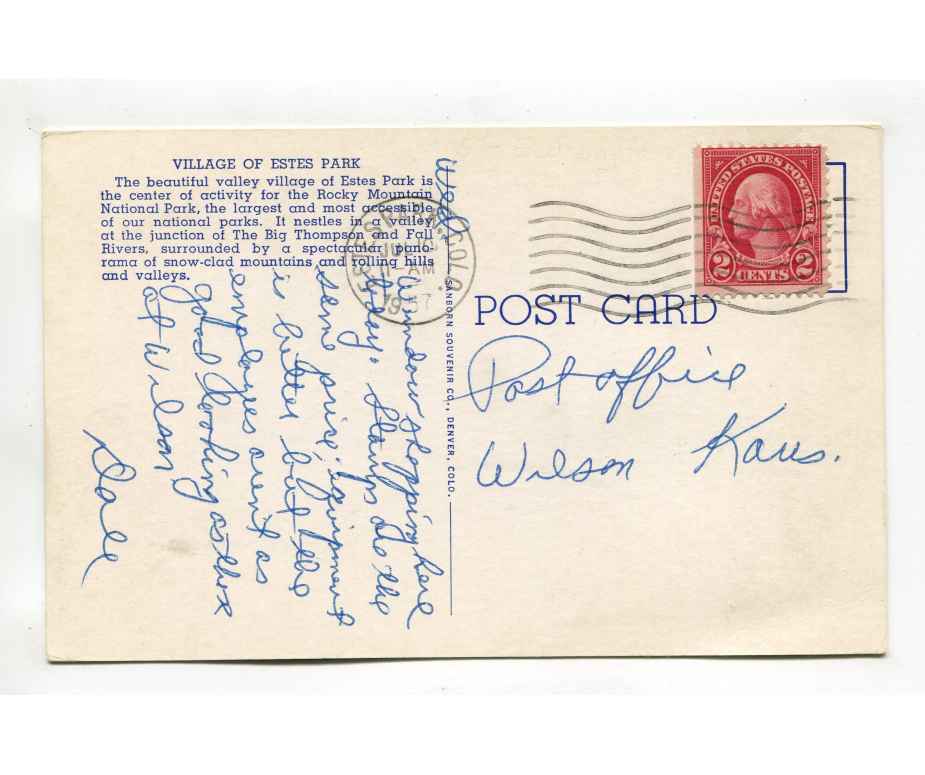 VILLAGE OF ESTES PARK
The beautiful valley village of Estes Park is
the center of activity for the Rocky Mountain
National Park, the largest and most accessible
of our national parks. It nestles in a valley
at the junction of The Big Thompson and Fall
Rivers, surrounded by a spectacular pano-
rama of snow-clad mountains and rolling hills
and valleys.
Wed.
Window shopping here
today. Stamps are the
same price, equipment
is better but the
employees arent as
good looking as those
at Wilson
Dale
ESTES PARK, COLO.
AM
SANBORN SOUVENIR CO., DENVER, COLO.
UNITED STATES POSTAGE
2 CENTS 2
POST CARD
Post office
Wilson Kans.